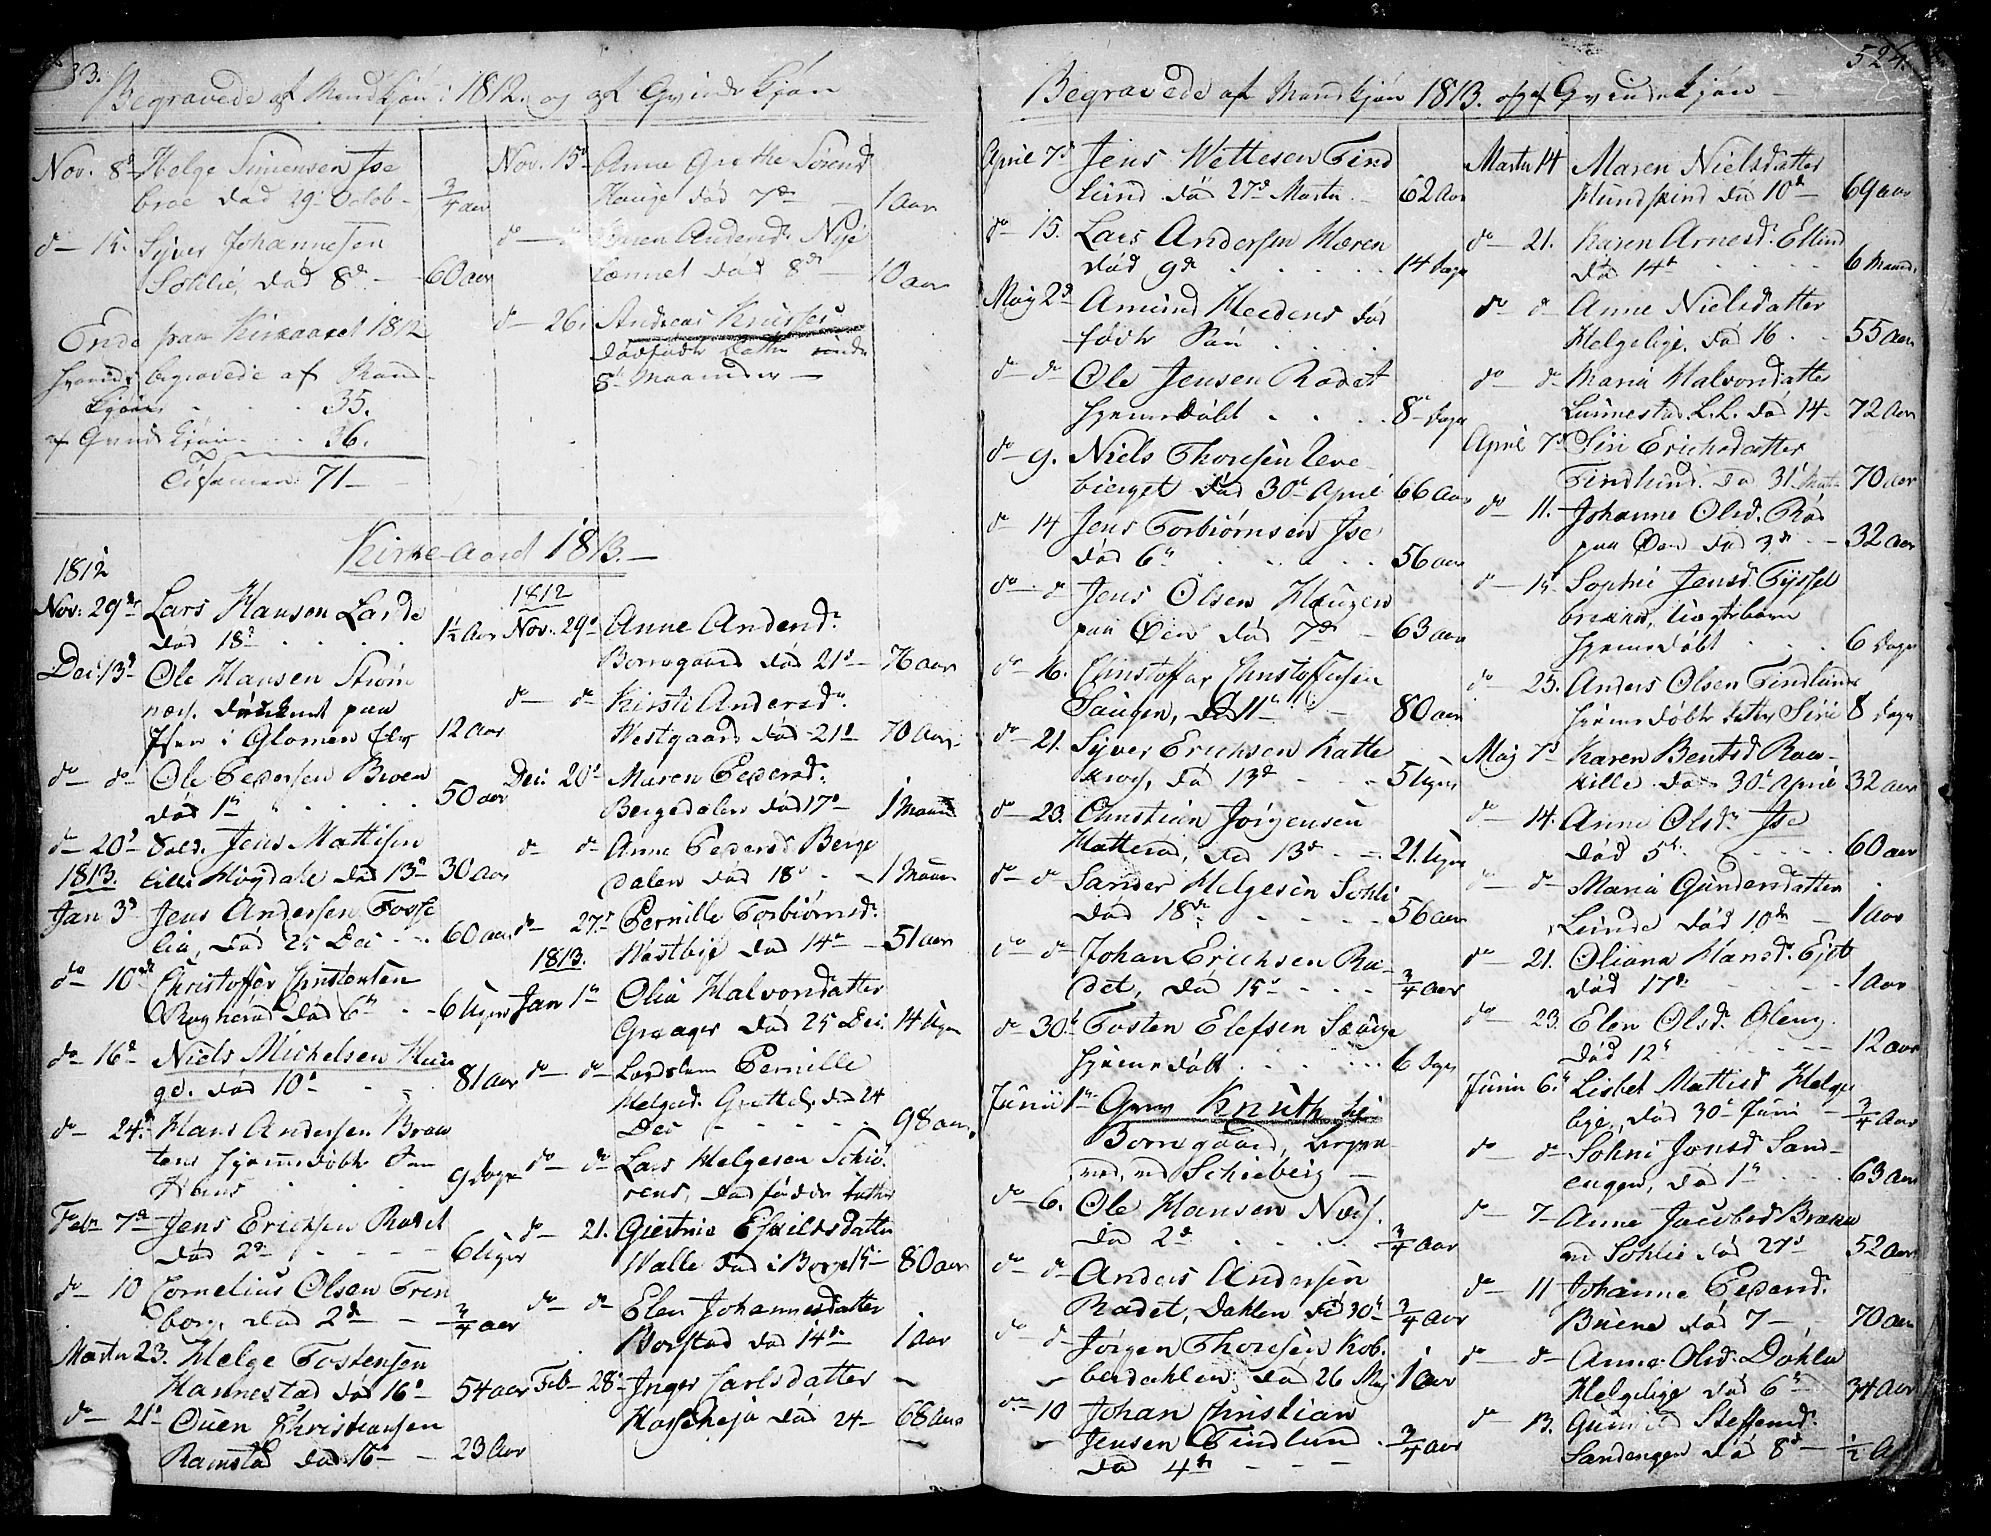 33.
Begravede af Mandkjön i 1812. og af Qvindekjön
Nov. 8d Helge Simensen Ise
broe död 29 Octob. 3/4 aar
do 15. Syver Johannesen
Sohlie, död 8de 60 aar
Ende paa Kirkeaaret 1812
begravede af Mand
kjön 35.
af Qvindekjön 36.
Tilsamen 71
Nov. 15d Anne Grethe Sörensd.
Hauge död 7de 1 Aar
do Karen Andersd.
död 8de 10 aar
do 26. Andreas
dödfödte Datter
8 Maaneder
Kirke-Aaret 1813.
1812
Nov: 29de Lars Hansen Lande
död 18d 1½ Aar
Dec: 13d Ole Hansen Ström
nes. druknet paa
Isen i Glomen Elv 12 Aar
do do Ole Pedersen Broen
död 1te 50 aar
do 20d Sold. Jens Mattisen
1813. lille Högdahl död 13d 30 Aar
Jan 3d Jens Andersen Fosse
lie, död 25 Dec 60 aar
do 10de Christoffer Christensen
Rognerød död 6te 6 Uger
do 16d Niels Michelsen Hau
ge. död 10d 81 Aar
do 24d Hans Andersen Brau
tens hjemmedöbte Sön
Hans 9 Dage
Febr 7de Jens Erichsen Rødet
död 2de 6 Uger
do 10 Cornelius Olsen Tren
borg, död 2de 3/4 aar
Martii 23. Helge Tostensen
Hannestad död 16d 54 aar
do 21d Ouen Christiansen
Ramstad död 16 23 Aar
1812
Nov. 29d Anne Andersd.
Borregaard död 21d 76 aar
do do Kirsti Andersd.
Westgaard död 21d 70 Aar
Dec: 20d Maren Pedersd.
Bergedalen död 17d 1 Maaned
do do Anne Pedersd Berge
dalen död 18d 1 Maan
do 27d Pernille Torbiörnsd.
Westbye död 14d 51 aar
1813.
Jan 1te Olia Halvorsdatter
Graager död 25 Dec. 14 Uger
do do Lægdslem Pernille
Helgesd. död 24
Dec 98 aar
do do Lars Helgesen Schiö
rens, dödfödde datter
do 21. Giertrue Eskildsdatter
Walle död i Borge 15 80 aar
do do Elen Johannesdatter
Borstad död 14de 1 Aar
Feb 28d Inger Carlsdatter
död 24 68 Aar
524.
Begravede af Mandkjön 1813. og af Qvindekjön
April 7d Jens Wettesen Find
lund död 27d Martii 62 Aar
do 15. Lars Andersen Haren
död 9de 14 dage
Maj 2d Amund Heedens död
födte Sön
do do Ole Jensen Rødet
hjemmedöbt 8te dage
do 9. Niels Thoresen Leve
bierget död 30d April 66 Aar
do 14 Jens Torbiörnsen Ise
död 6te 56 aar
do do Jens Olsen Haugen
paa Öen död 7de 63 aar
do 16. Christoffer Christoffersen
Saugen, död 11te 80 aar
do 21. Syver Erichsen Katte
död 13d 5 Uger
do 23. Christian Jörgensen
Hatteröd, död 13d 21 Uger
do do Sander Helgesen Sohli
död 18de 56 aar
do do Johan Erichsen Rø
det, död 15d 3/4 aar
do 30d Tosten Elefsen Sauge
hjemmedöbt 6 Dage
Junii 1te Grev Knuth til
Borregaard, begra
vet ved Schieberg
do 6. Ole Hansen Næs.
död 2d 3/4 Aar
do do Anders Andersen
Rødet, Dahlen død 30d 3/4 Aar
do do Jörgen Thoresen Kob
berdahlen, död 26 Maj 1 aar
do 10 Johan Christian
Jensen Findlund
död 4de 3/4 Aar
Martii 14 Maren Nielsdatter
död 10de 69 aar
do 21. Karen Arnesd. Ellind
död 14d 6 Maand:
do do Anne Nielsdatter
Helgebye, död 16 55 aar
do do Maria Halvorsdatter
Lunnestad L.L. död 14 72 Aar
April 7d Siri Erichsdatter
Findlund. död 31 Mart. 70 aar
do 11. Johanne Olsd. Röd
paa Öen död 3de 32 aar
do 15 Sophie Jensd. Tyssel
hjemmedöbt 6 Dage
do 25. Anders Olsen Findlunds
hjemmedöbte datter Siri 8 dage
Maj 7d Karen Bentsd
död 30d April 32 aar
do 14. Anne Olsd. Ise
död 5te 60 aar
do do Maria Gundersdatter
Lunde död 10de 1 Aar
do 21. Oliana Hansd.
död 17de 1 Aar
do 23. Elen Olsd. Gleng.
död 12te 12 aar
Junii 6te Lisbet Mattisd Helge
bye, död 30d 3/4 Aar
do do Johne Jonsd Sand
engen, död 1te 63 Aar
do 7 Anne Jacobsd
Sohlie död 27d 52 Aar
do 11 Johanne Pedersd.
död 7 70 aar
do do Anne Olsd: Dahlen
Helgebye död 6te 34 Aar
do 13. Steffensd.
Sandengen död 8de ½ Aar